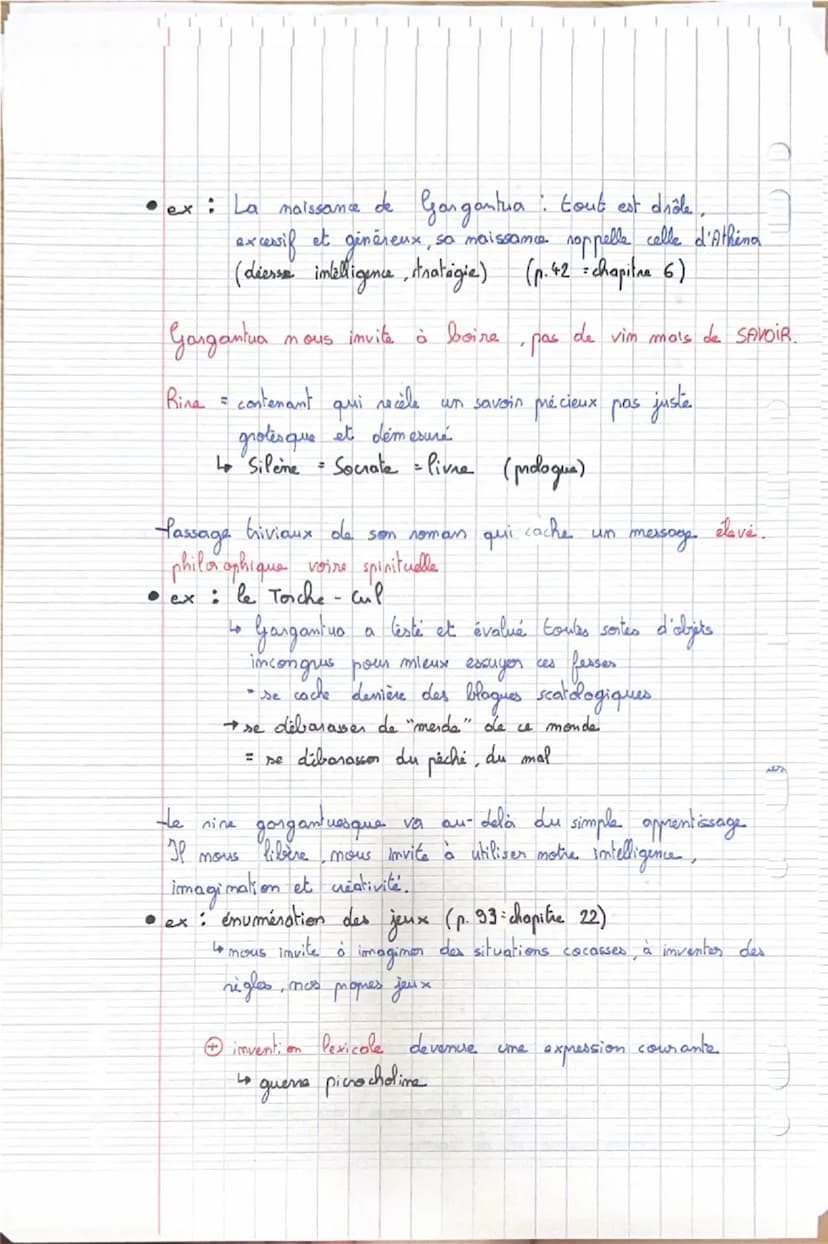 • ex : La naissance de Gargantua : tout est drôle,
excessif et généreux, sa naissance rappelle celle d'Athéna
(déesse intelligence, stratégie) (p.42 = chapitre 6)
Gargantua nous invite à boire, pas de vin mais de SAVOIR.
Rire = contenant qui recèle un savoir précieux pas juste
grotesque et démesuré
↳ Silène = Socrate = livre (prologue)
-Passage triviaux de son roman qui cache un message élevé.
philosophique voire spirituelle
• ex : le Torche - Cul
↳ Gargantua a testé et évalué toutes sortes d'objets
incongrus pour mieux essuyer ces fesses
- se cache derrière des blagues scatologiques
→ se débarasser de "merde" de ce monde
= se débarasser du péché, du mal
-Le rire gargantuesque va au-delà du simple apprentissage
Il nous libère, nous invite à utiliser notre intelligence,
imagination et créativité.
• ex : énumération des jeux (p. 93 = chapitre 22)
↳ nous invite à imaginer des situations cocasses, à inventer des
règles, nos propres jeux
⊕ invention lexicale devenue une expression courante
↳ guerre picrocholine